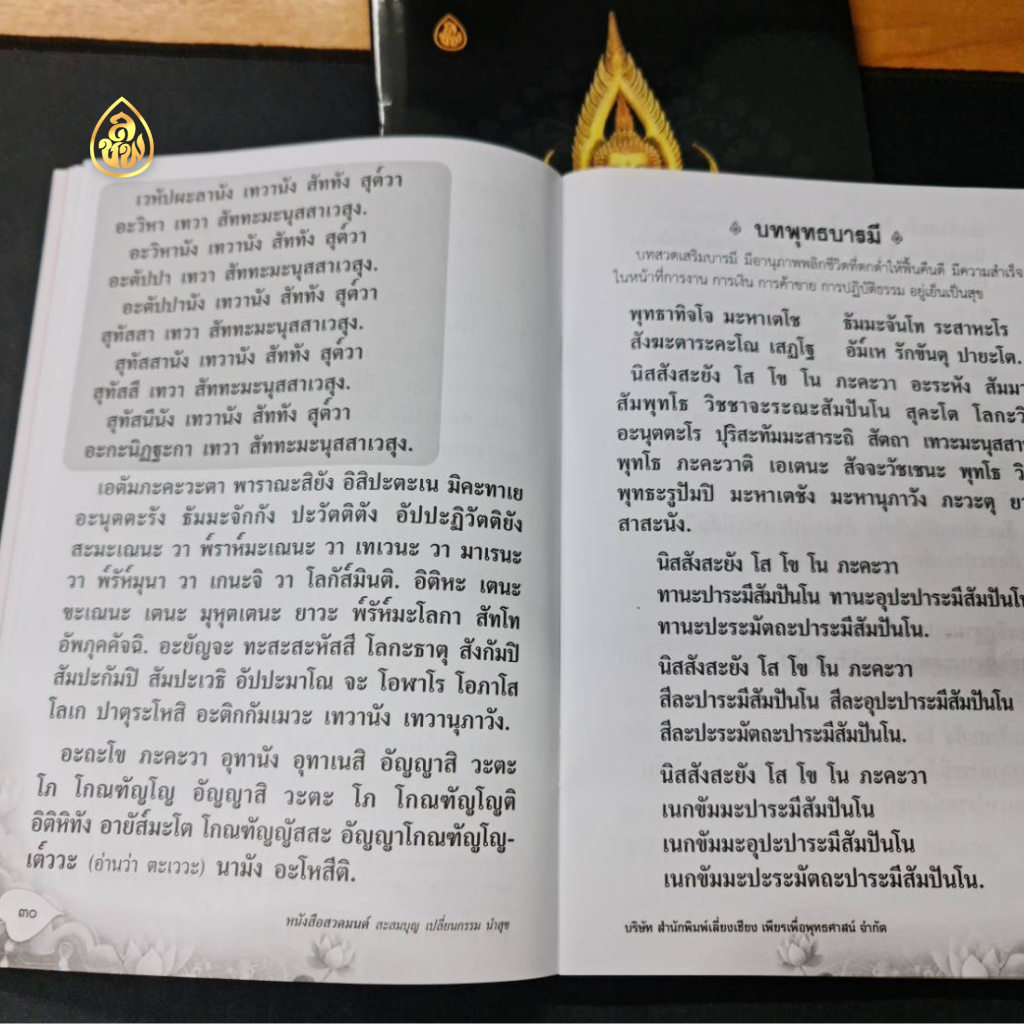 ลีซม
เวหัปผะลานัง เทวานัง สัททัง สุต์วา
อะวิหา เทวา สัททะมะนุสสาเวสุง.
อะวิหานัง เทวานัง สัททัง สุต์วา
อะตัปปา เทวา สัททะมะนุสสาเวสุง.
อะตัปปานัง เทวานัง สัททัง สุต์วา
สุทัสสา เทวา สัททะมะนุสสาเวสุง.
สุทัสสานัง เทวานัง สัททัง สุต์วา
สุทัสสี เทวา สัททะมะนุสสาเวสุง.
สุทัสนีนัง เทวานัง สัททัง สุต์วา
อะกะนิฏฐะกา เทวา สัททะมะนุสสาเวสุง.
เอตัมภะคะวะตา พาราณะสิยัง อิสิปะตะเน มิคะทาเย
อะนุตตะรัง ธัมมะจักกัง ปะวัตติตัง อัปปะฏิวัตติยัง
สะมะเณนะ วา พ์ราห์มะเณนะ วา เทเวนะ วา มาเรนะ
วา พ์รัห์มุนา วา เกนะจิ วา โลกัส์มินติ. อิติหะ เตนะ
ขะเณนะ เตนะ มุหุตเตนะ ยาวะ พ์รัห์มะโลกา สัทโท
อัพภุคคัจฉิ. อะยัญจะ ทะสะสะหัสสี โลกะธาตุ สังกัมปิ
สัมปะกัมปิ สัมปะเวธิ อัปปะมาโณ จะ โอฬาโร โอภาโส
โลเก ปาตุระโหสิ อะติกกัมเมวะ เทวานัง เทวานุภาวัง.
อะถะโข ภะคะวา อุทานัง อุทาเนสิ อัญญาสิ วะตะ
โภ โกณฑัญโญ อัญญาสิ วะตะ โภ โกณฑัญโญติ
อิติหิทัง อายัส์มะโต โกณฑัญญัสสะ อัญญาโกณฑัญโญ-
เต์ววะ (อ่านว่า ตะเววะ) นามัง อะโหสีติ.
๓๐
หนังสือสวดมนต์ สะสมบุญ เปลี่ยนกรรม นำสุข
บทพุทธบารมี
บทสวดเสริมบารมี มีอานุภาพพลิกชีวิตที่ตกต่ำให้ฟื้นคืนดี มีความสำเร็จ
ในหน้าที่การงาน การเงิน การค้าขาย การปฏิบัติธรรม อยู่เย็นเป็นสุข
พุทธาทิจโจ มะหาเตโช ธัมมะจันโท ระสาหะโร
สังฆะตาระคะโณ เสฏโฐ อัม์เห รักขันตุ ปายะโต.
นิสสังสะยัง โส โข โน ภะคะวา อะระหัง สัมมา
สัมพุทโธ วิชชาจะระณะสัมปันโน สุคะโต โลกะวิ
อะนุตตะโร ปุริสะทัมมะสาระถิ สัตถา เทวะมะนุสสา
พุทโธ ภะคะวาติ เอเตนะ สัจจะวัชเชนะ พุทโธ วิ
พุทธะรูปัมปิ มะหาเตชัง มะหานุภาวัง ภะวะตุ ยา
สาสะนัง.
นิสสังสะยัง โส โข โน ภะคะวา
ทานะปาระมีสัมปันโน ทานะอุปะปาระมีสัมปันโน
ทานะปะระมัตถะปาระมีสัมปันโน.
นิสสังสะยัง โส โข โน ภะคะวา
สีละปาระมีสัมปันโน สีละอุปะปาระมีสัมปันโน
สีละปะระมัตถะปาระมีสัมปันโน.
นิสสังสะยัง โส โข โน ภะคะวา
เนกขัมมะปาระมีสัมปันโน
เนกขัมมะอุปะปาระมีสัมปันโน
เนกขัมมะปะระมัตถะปาระมีสัมปันโน.
บริษัท สำนักพิมพ์เลี่ยงเชียง เพียรเพื่อพุทธศาสน์ จำกัด